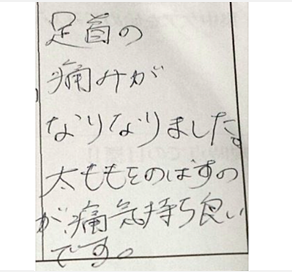 足首の
痛みが
なりなりました。
太ももをのばすの
が痛気持ち良い
です。